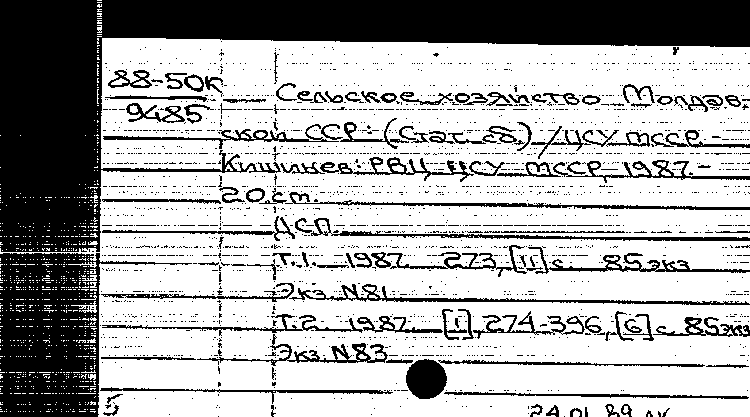 88-50К
9485
Сельское хозяйство Молдав-
ской ССР: (Стат. сб.) / ЦСУ МССР. -
Кишинев: РВЦ ЦСУ МССР, 1987. -
20 см.
ДСП
Т.1. 1987. 273, [11] с. 85 экз
Экз. N81
Т.2. 1987. [1], 274-396, [6] с. 85экз
Экз. N83
5
24.01.89